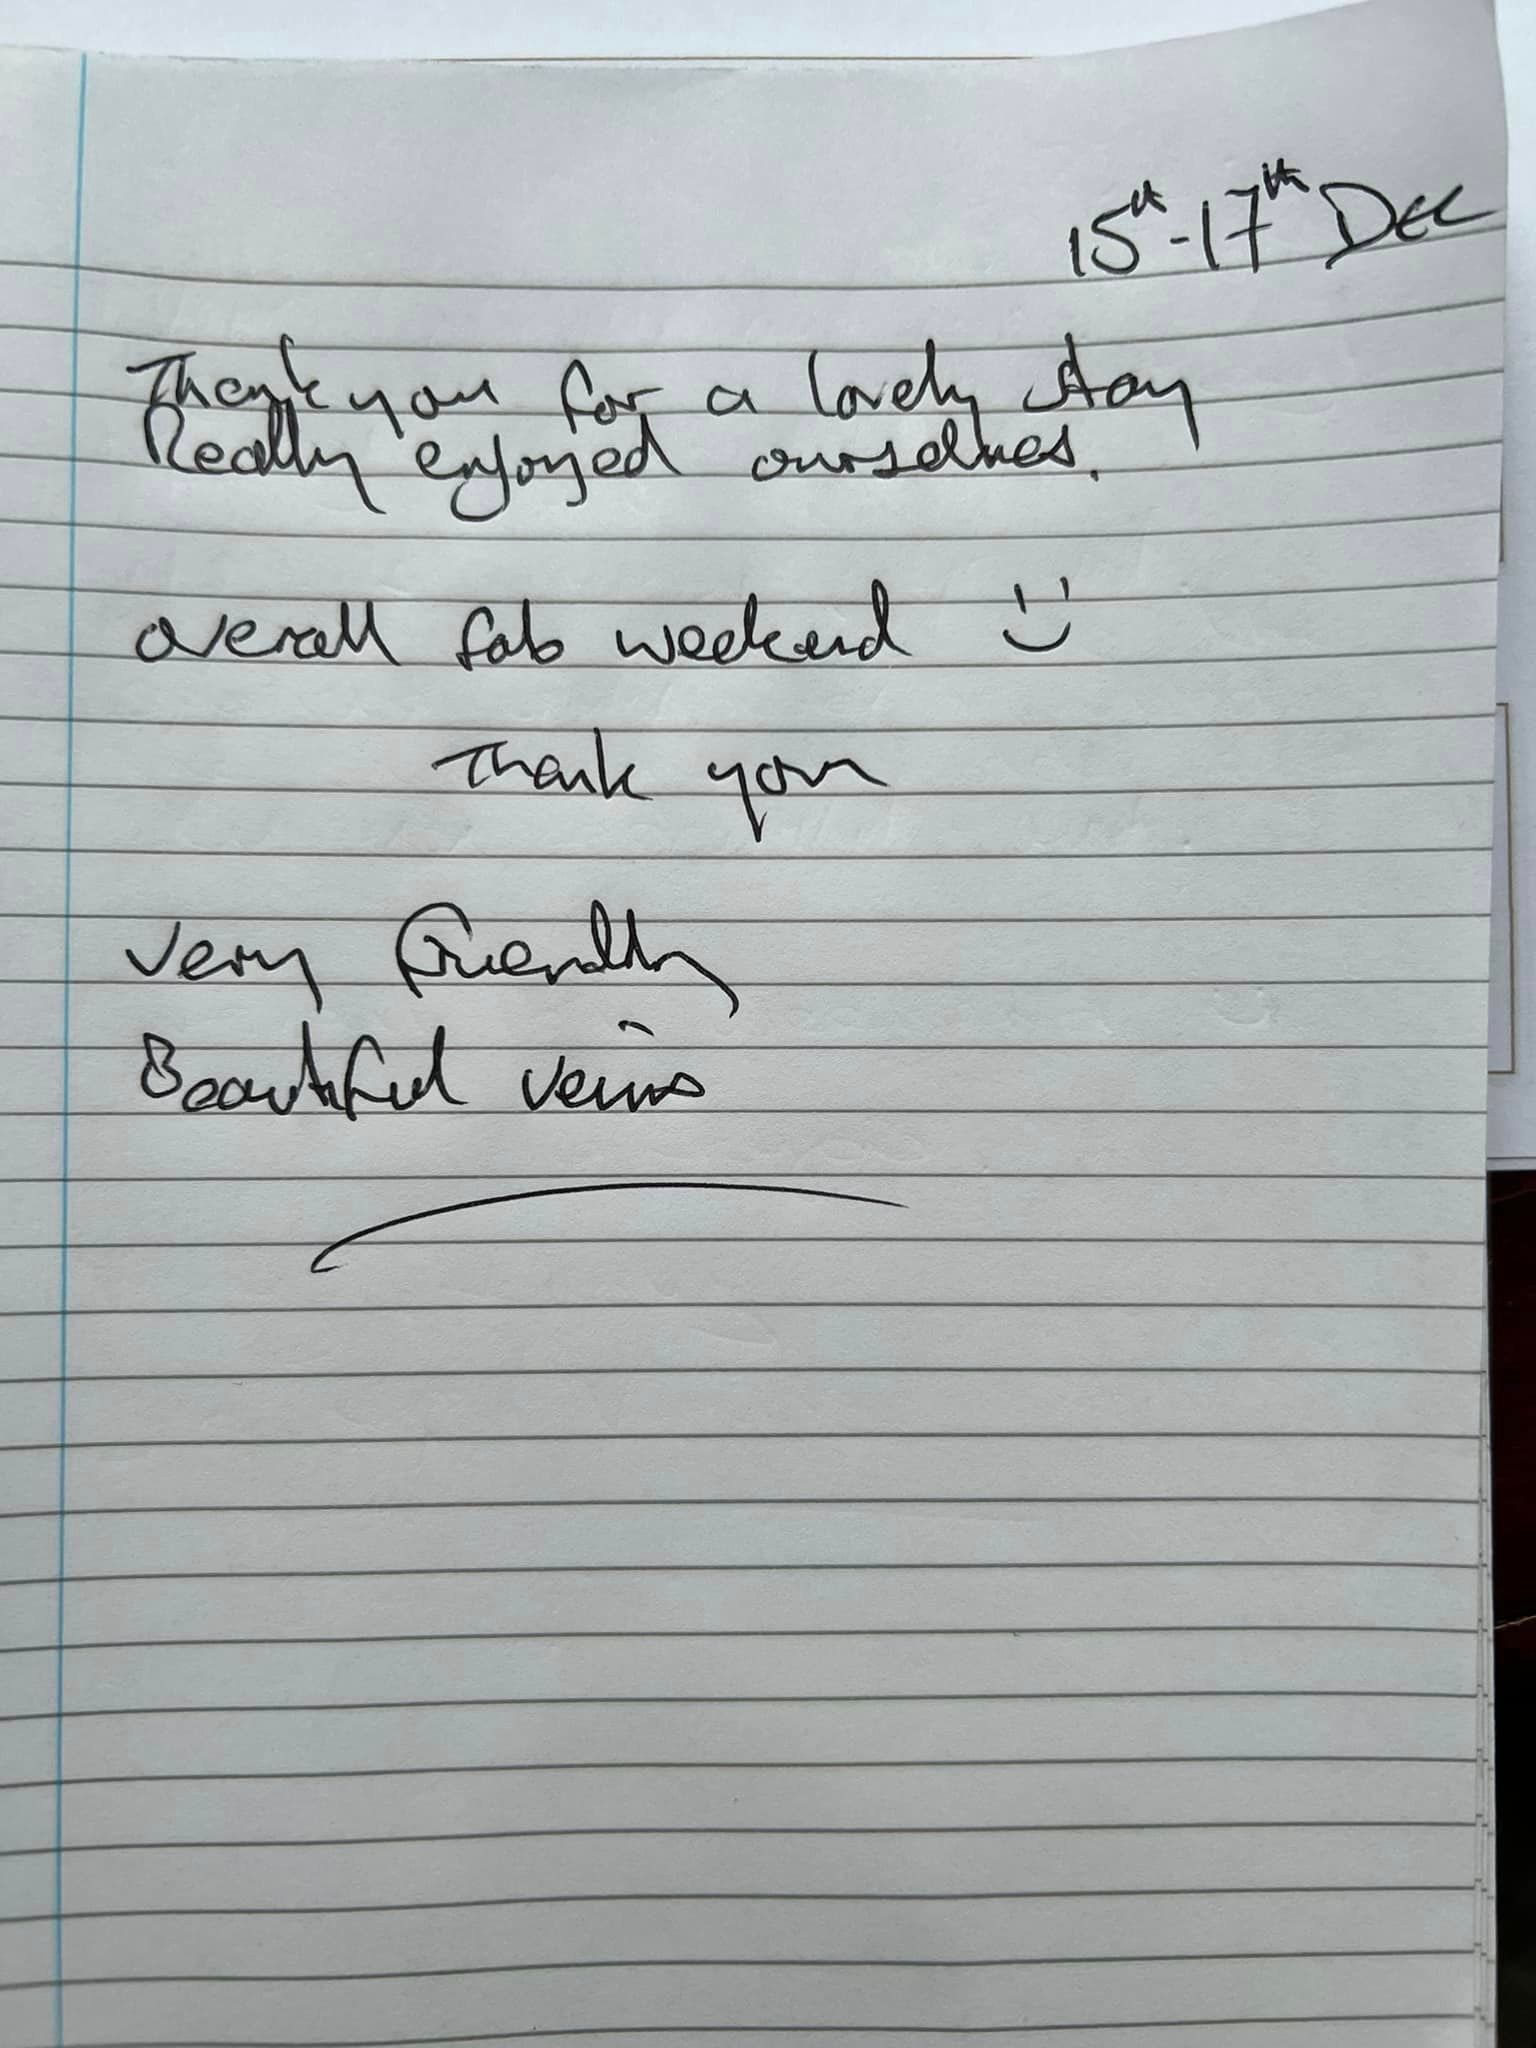 15th - 17th Dec
Thank you for a lovely stay
Really enjoyed ourselves.
Overall fab weekend :)
Thank you
Very Friendly
Beautiful